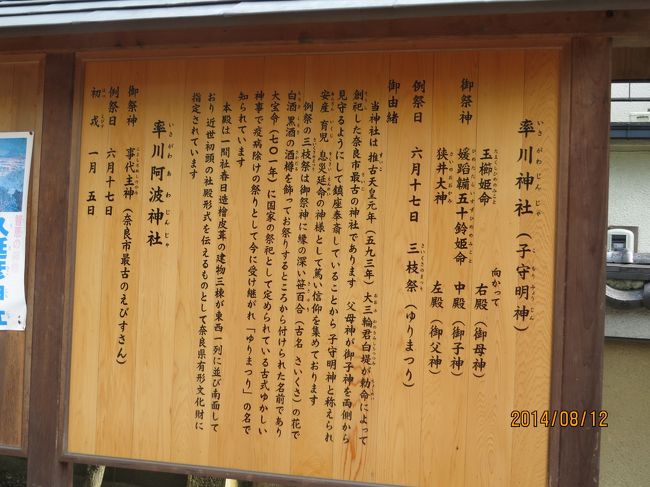 率川神社（子守明神）
いさがわじんじゃ
こもりみょうじん
御祭神
向かって
玉櫛姫命 右殿（御母神）
媛蹈韛五十鈴姫命 中殿（御子神）
狭井大神 左殿（御父神）
例祭日 六月十七日 三枝祭（ゆりまつり）
さいくさのまつり
御由緒
当神社は推古天皇元年（五九三年）大三輪君白堤が勅命によって
創祀した奈良市最古の神社であります 父母神が御子神を両側から
見守るようにして鎮座奉斎していることから子守明神と称えられ
安産 育児 息災延命の神様として篤い信仰を集めております
例祭の三枝祭は御祭神に縁の深い笹百合（古名 さいくさ）の花で
白酒 黒酒の酒樽を飾ってお祭りするところから付けられた名前であり
大宝令（七〇一年）に国家の祭祀として定められている古式ゆかしい
神事で疫病除けの祭りとして今に受け継がれ「ゆりまつり」の名で
知られています
本殿は一間社春日造檜皮葺の建物三棟が東西一列に並び南面して
おり 近世初頭の社殿形式を伝えるものとして奈良県有形文化財に
指定されています
率川阿波神社
いさがわあわじんじゃ
御祭神 事代主神（奈良市最古のえびすさん）
例祭日 六月十七日
初戎 一月 五日
2014/08/12